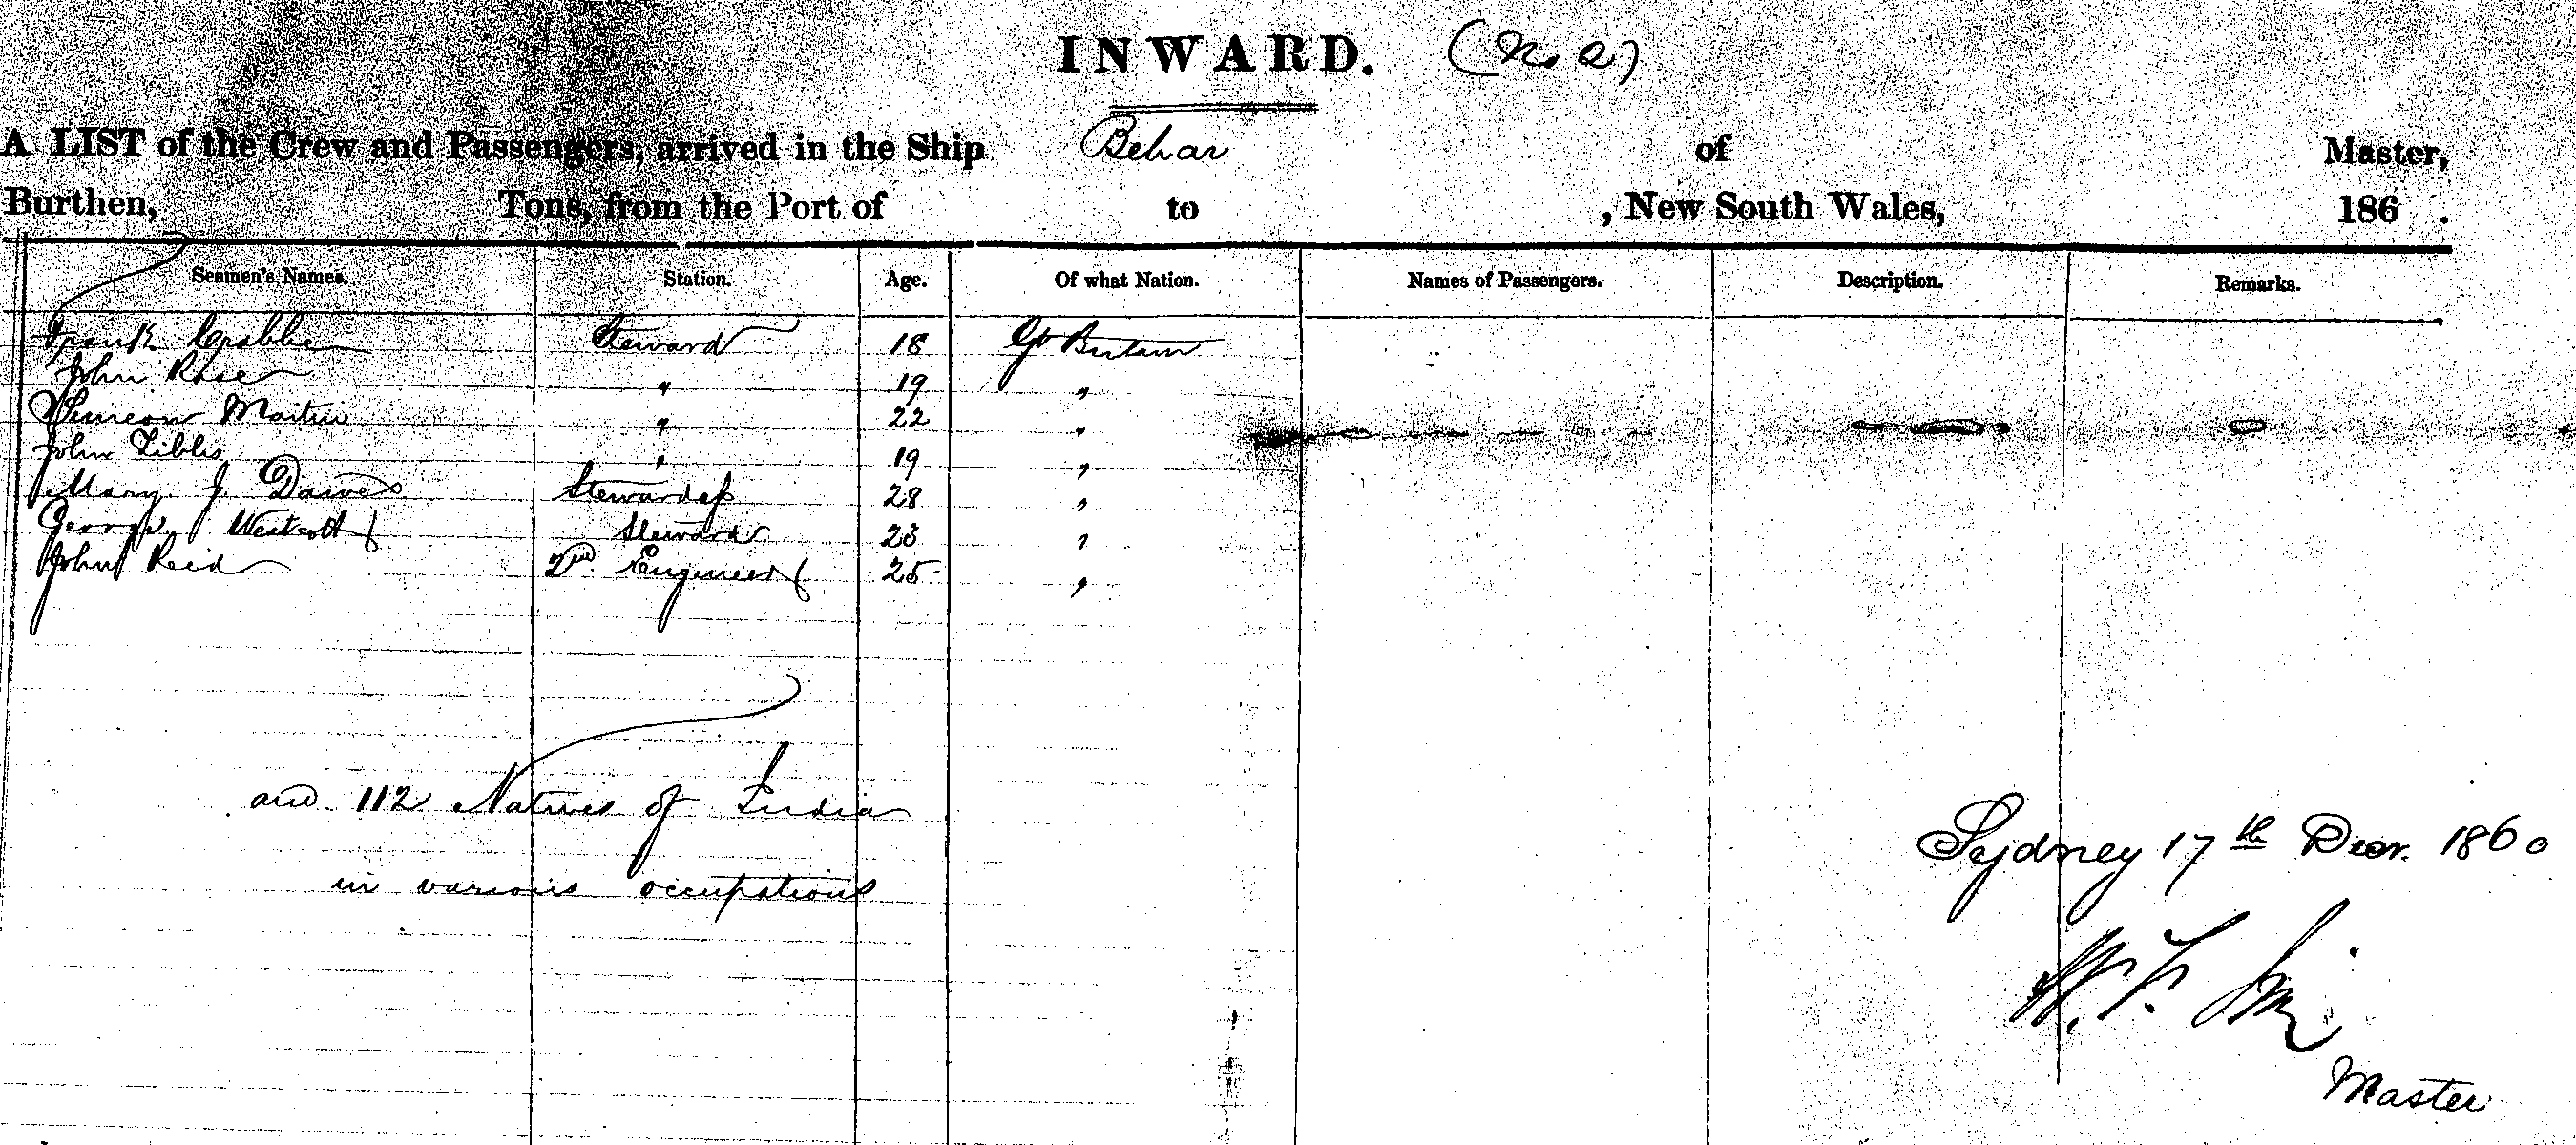 INWARD. (No 2)
A LIST of the Crew and Passengers, arrived in the Ship Behar of Master,
Burthen, Tons, from the Port of to , New South Wales, 186 .
Seamen's Names. Station. Age. Of what Nation. Names of Passengers. Description. Remarks.
Frank Crabbe Steward 18 Gt Britain
John Rose " 19 "
Simeon Martin " 22 "
John Tibbs " 19 "
Mary J. Dawes Stewardess 28 "
George Westcott Steward 23 "
John Reid 2nd Engineer 25 "
and 112 Natives of India
in various occupations
Sydney 17th Decr. 1860
Master